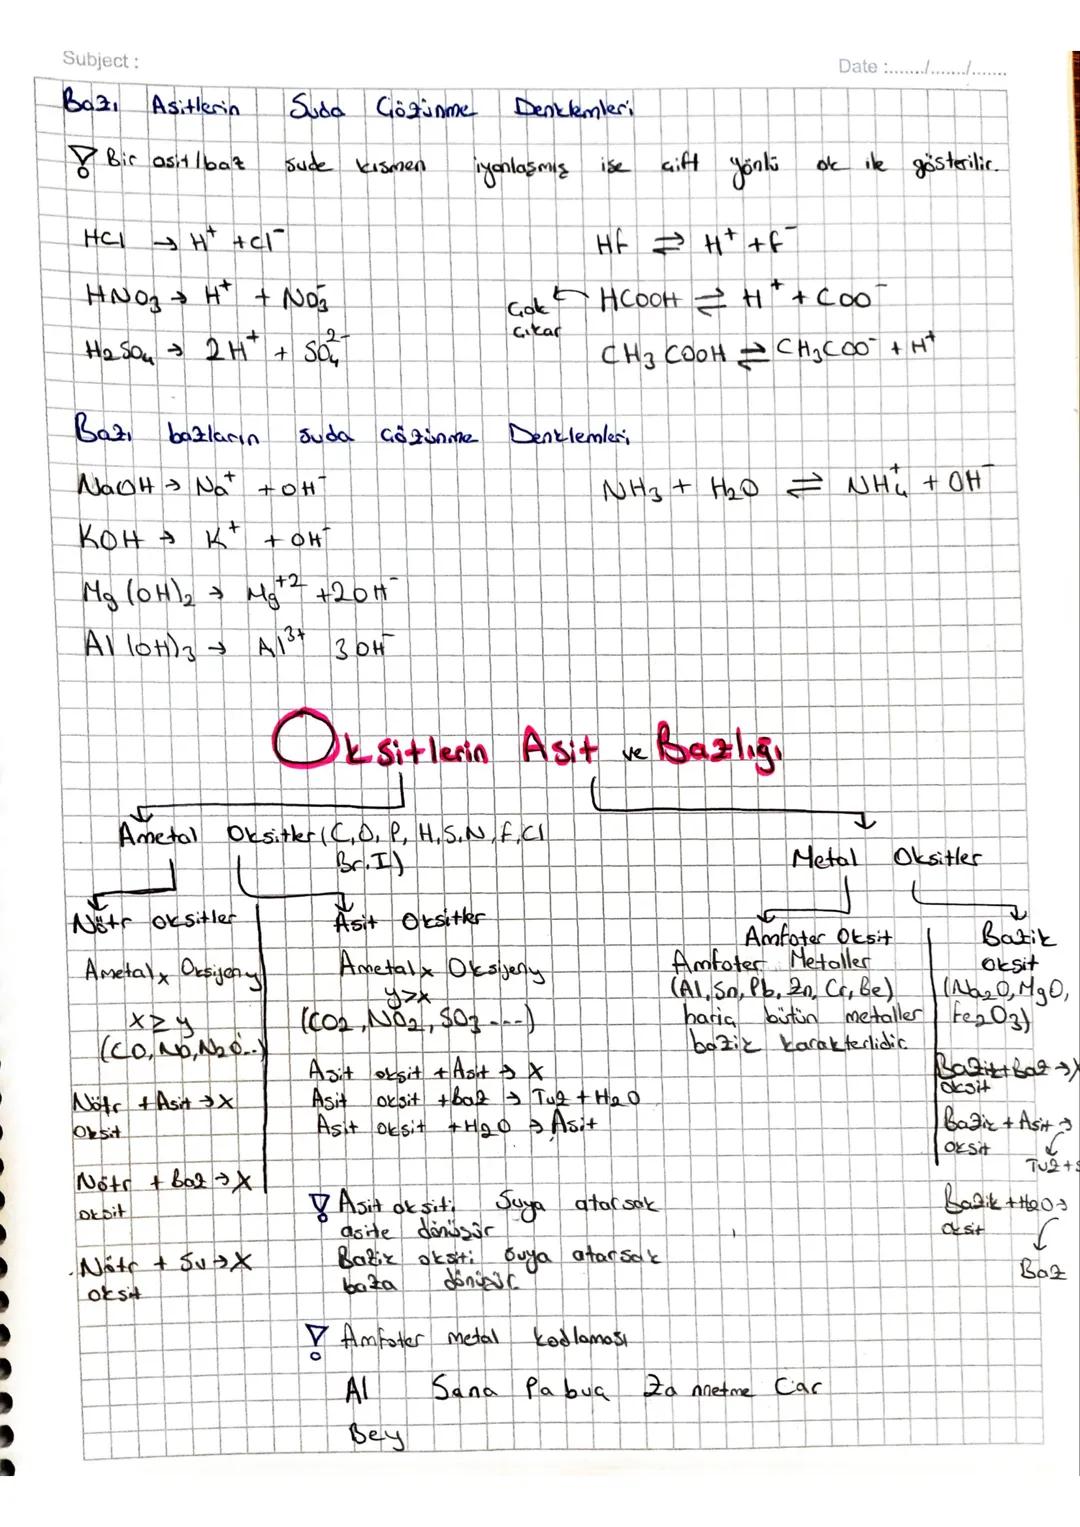 Subject :
Date :......./......./.......
Bazı Asitlerin Suda Çözünme Denklemleri
Bir asit/baz suda kısmen iyonlaşmış ise çift yönlü ok ile gösterilir.
HCl → H⁺ + Cl⁻
HF ⇌ H⁺ + F⁻
HNO₃ → H⁺ + NO₃⁻
Çok çıkar
HCOOH ⇌ H⁺ + COO⁻
H₂SO₄ → 2H⁺ + SO₄²⁻
CH₃COOH ⇌ CH₃COO⁻ + H⁺
Bazı bazların suda Çözünme Denklemleri
NaOH → Na⁺ + OH⁻
NH₃ + H₂O ⇌ NH₄⁺ + OH⁻
KOH → K⁺ + OH⁻
Mg(OH)₂ → Mg⁺² + 2OH⁻
Al(OH)₃ → Al³⁺ 3OH⁻
Oksitlerin Asit ve Bazlığı
Ametal Oksitler (C, O, P, H, S, N, F, Cl
Br, I)
Metal Oksitler
Nötr oksitler
Ametalx Oksijeny
x ≥ y
(CO, NO, N₂O..)
Nötr + Asit → X
Oksit
Nötr + Baz → X
oksit
Nötr + Su → X
oksit
Asit Oksitler
Ametalx Oksijeny
y > x
(CO₂, NO₂, SO₃ ---)
Asit oksit + Asit → X
Asit oksit + baz → Tuz + H₂O
Asit oksit + H₂O → Asit
Asit oksiti Suya atarsak
asite dönüşür
Bazik oksiti suya atarsak
baza dönüşür
Amfoter metal kodlaması
Al Sana Pabuç Zannetme Car
Bey
Amfoter Oksit
Amfoter Metaller
(Al, Sn, Pb, Zn, Cr, Be)
hariç bütün metaller
bazik karakterlidir
Bazik
oksit
(Na₂O, MgO,
Fe₂O₃)
Bazik + Baz → X
oksit
Bazik + Asit →
oksit
Tuz + S
Bazik + H₂O →
oksit
Baz